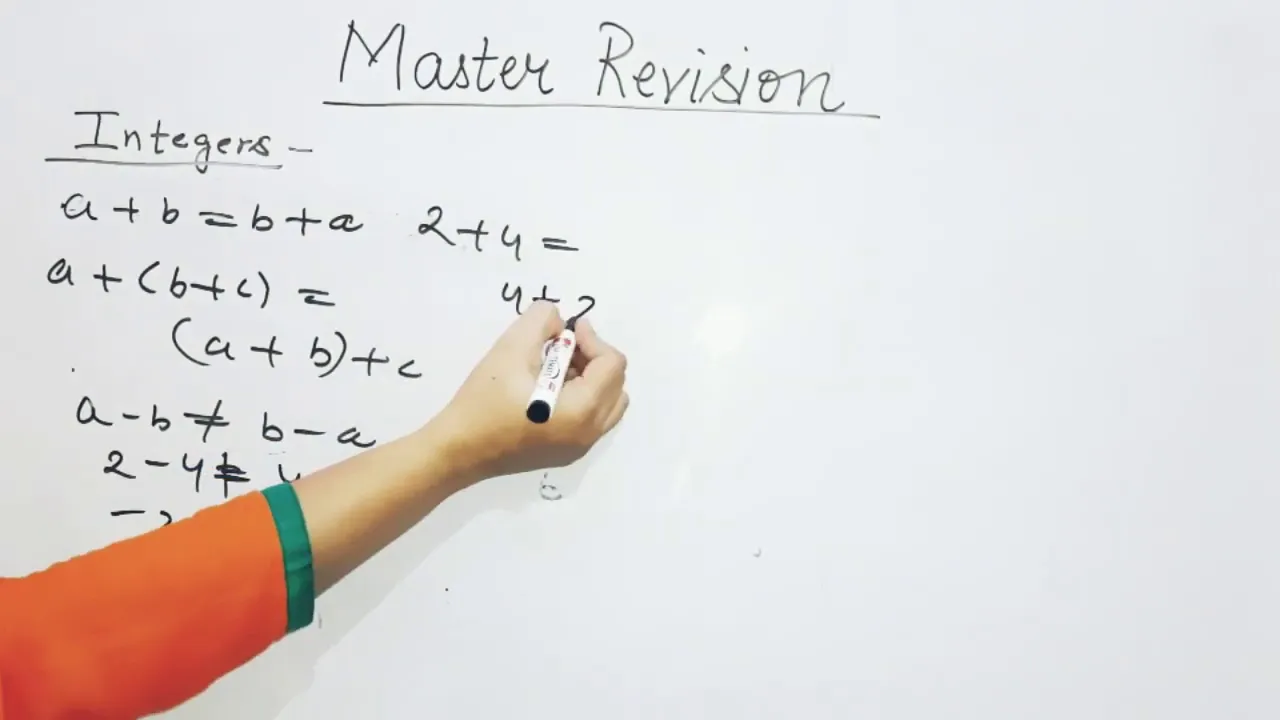 Master Revision
Integers -
a + b = b + a
2 + 4 =
4 + 2
a + (b + c) =
(a + b) + c
a - b ≠ b - a
2 - 4 ≠ 4